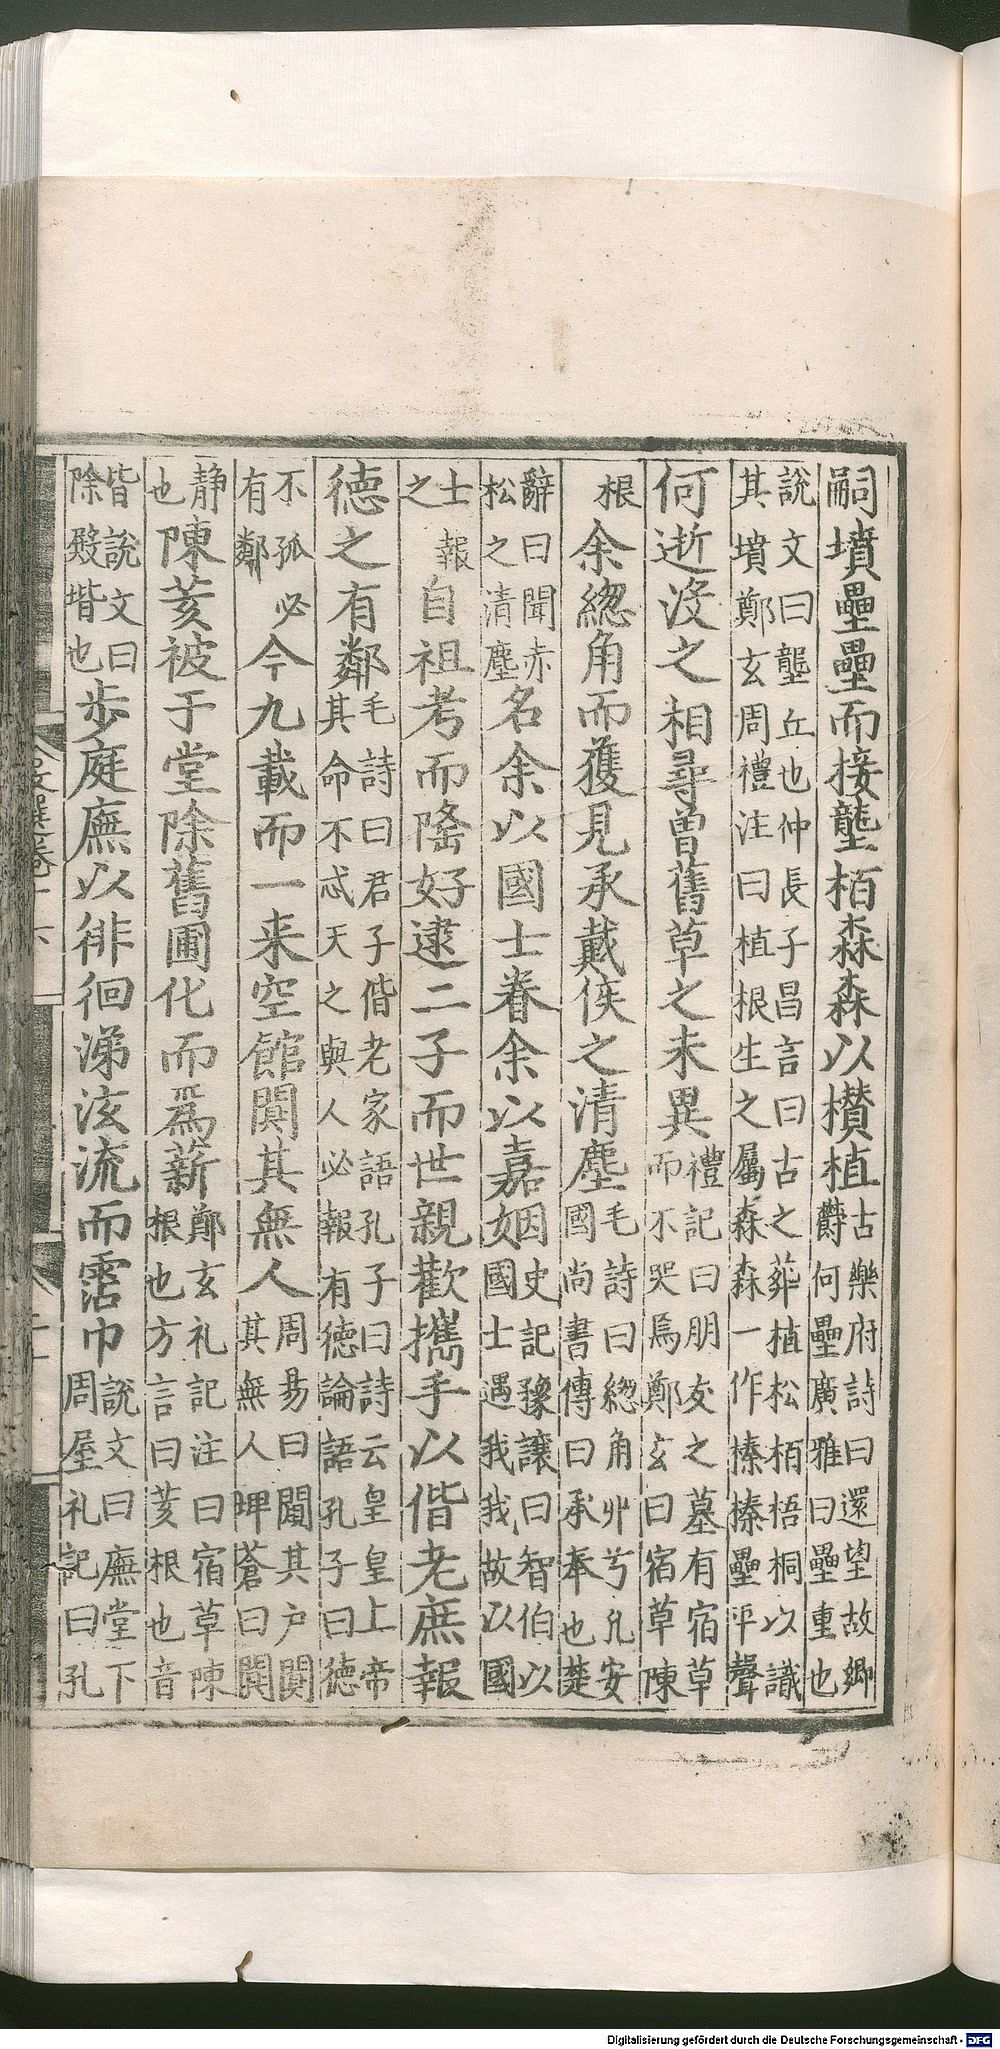 嗣墳壘壘而接壟栢森森以攅植古樂府詩曰還望故鄉欝何壘廣雅曰壘重也
說文曰壟丘也仲長子昌言曰古之葬植松栢梧桐以識其墳鄭玄周禮注曰植根生之屬森森一作榛榛壘平聲
何逝没之相尋曽舊草之未異禮記曰朋友之墓有宿草而不哭焉鄭玄曰宿草陳
根余緫角而獲見承戴侯之清塵毛詩曰緫角丱兮孔安國尚書傳曰承奉也楚
辭曰聞赤松之清塵名余以國士眷余以嘉姻史記豫讓曰智伯以國士遇我我故以國
士報之自祖考而隆好逮二子而世親歡攜手以偕老庶報
德之有鄰毛詩曰君子偕老家語孔子曰詩云皇皇上帝其命不忒天之與人必報有德論語孔子曰德
不孤必有鄰今九載而一来空館闃其無人周易曰闚其户闃其無人埤蒼曰闃
静也陳荄被于堂除舊圃化而爲薪鄭玄礼記注曰宿草陳根也方言曰荄根也音
皆說文曰除殿堦也步庭廡以徘徊涕泫流而霑巾說文曰廡堂下周屋礼記曰孔
文選卷十六
Digitalisierung gefördert durch die Deutsche Forschungsgemeinschaft - DFG